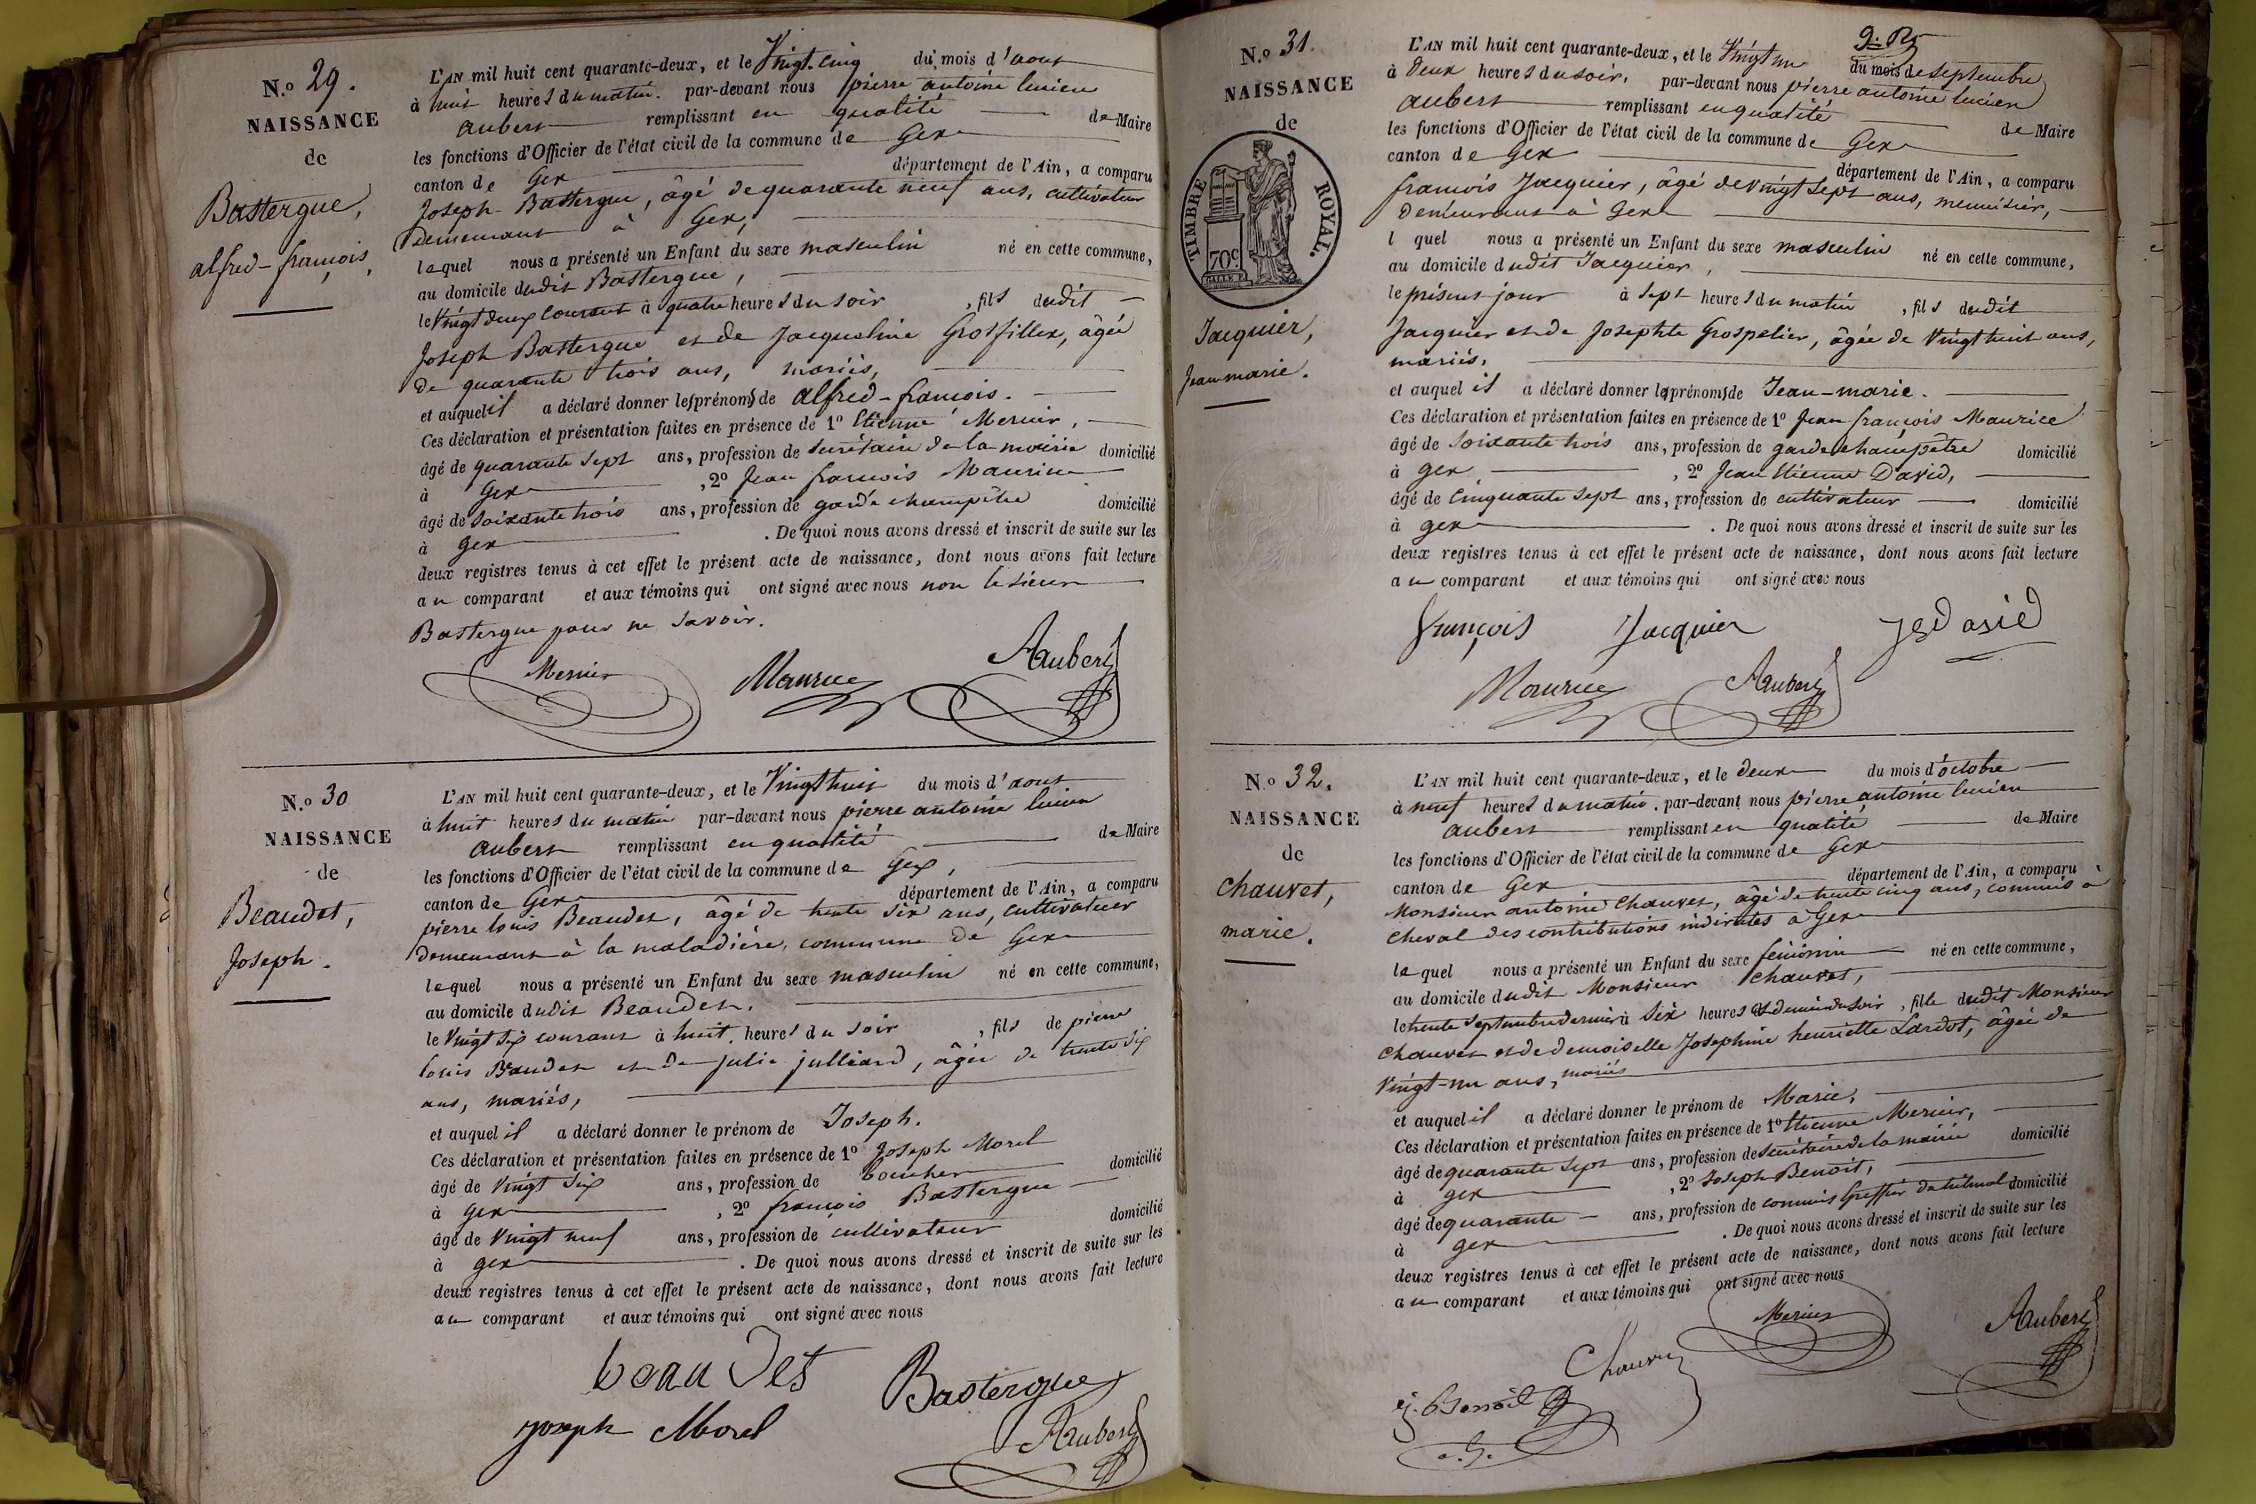 N.o 29.
NAISSANCE
de
Bastergue,
alfred-françois,
L'AN mil huit cent quarante-deux, et le Vingt-cinq du mois d'aout
à huit heures du matin. par-devant nous pierre antoine lucien
aubert remplissant en qualité de Maire
les fonctions d'Officier de l'état civil de la commune de Gex
canton de Gex département de l'Ain, a comparu
Joseph Bastergue, âgé de quarante neuf ans, cultivateur
demeurant à Gex,
lequel nous a présenté un Enfant du sexe masculin né en cette commune,
au domicile dudit Bastergue,
le Vingt deux courant à quatre heures du soir, fils dudit
Joseph Bastergue et de Jacqueline Grosfillex, âgée
de quarante trois ans, mariés,
et auquel il a déclaré donner les prénoms de alfred-françois.
Ces déclaration et présentation faites en présence de 1o Etienne Mercier,
âgé de quarante sept ans, profession de secrétaire de la mairie domicilié
à Gex, 2o Jean françois Maurice
âgé de soixante trois ans, profession de garde champêtre domicilié
à Gex. De quoi nous avons dressé et inscrit de suite sur les
deux registres tenus à cet effet le présent acte de naissance, dont nous avons fait lecture
au comparant et aux témoins qui ont signé avec nous non le sieur
Bastergue pour ne savoir.
Mercier Maurice Aubert
N.o 30
NAISSANCE
de
Beaudet,
Joseph.
L'AN mil huit cent quarante-deux, et le Vingt huit du mois d'aout
à huit heures du matin par-devant nous pierre antoine lucien
aubert remplissant en qualité de Maire
les fonctions d'Officier de l'état civil de la commune de Gex,
canton de Gex département de l'Ain, a comparu
pierre louis Beaudet, âgé de trente six ans, cultivateur
demeurant à la maladière, commune de Gex
lequel nous a présenté un Enfant du sexe masculin né en cette commune,
au domicile dudit Beaudet.
le Vingt six courant à huit heures du soir, fils de pierre
louis Beaudet et de julie julliard, âgée de trente six
ans, mariés,
et auquel il a déclaré donner le prénom de Joseph.
Ces déclaration et présentation faites en présence de 1o Joseph Morel
âgé de Vingt six ans, profession de boucher domicilié
à Gex, 2o françois Bastergue
âgé de Vingt neuf ans, profession de cultivateur domicilié
à gex. De quoi nous avons dressé et inscrit de suite sur les
deux registres tenus à cet effet le présent acte de naissance, dont nous avons fait lecture
au comparant et aux témoins qui ont signé avec nous
beau det Bastergue
joseph Morel Aubert
N.o 31.
NAISSANCE
de
TIMBRE ROYAL.
70c.
Jacquier,
Jean marie.
L'AN mil huit cent quarante-deux, et le Vingt un du mois de septembre
à deux heures du soir. par-devant nous pierre antoine lucien
aubert remplissant en qualité de Maire
les fonctions d'Officier de l'état civil de la commune de Gex
canton de Gex département de l'Ain, a comparu
françois Jacquier, âgé de vingt sept ans, menuisier,
demeurant à Gex
l quel nous a présenté un Enfant du sexe masculin né en cette commune,
au domicile dudit Jacquier,
le présent jour à sept heures du matin, fils dudit
Jacquier et de Josephte Grospelier, âgée de Vingt huit ans,
mariés,
et auquel il a déclaré donner les prénoms de Jean-marie.
Ces déclaration et présentation faites en présence de 1o Jean françois Maurice
âgé de soixante trois ans, profession de garde champêtre domicilié
à gex, 2o Jean Etienne David,
âgé de cinquante sept ans, profession de cultivateur domicilié
à gex. De quoi nous avons dressé et inscrit de suite sur les
deux registres tenus à cet effet le présent acte de naissance, dont nous avons fait lecture
au comparant et aux témoins qui ont signé avec nous
françois Jacquier David
Maurice Aubert
N.o 32.
NAISSANCE
de
Chauvet,
marie.
L'AN mil huit cent quarante-deux, et le deux du mois d'octobre
à neuf heures du matin. par-devant nous pierre antoine lucien
aubert remplissant en qualité de Maire
les fonctions d'Officier de l'état civil de la commune de Gex
canton de Gex département de l'Ain, a comparu
Monsieur antoine Chauvet, âgé de trente cinq ans, commis à
cheval des contributions indirectes à Gex
lequel nous a présenté un Enfant du sexe féminin né en cette commune,
au domicile dudit Monsieur Chauvet,
le trente septembre dernier à six heures et demie du soir, fille dudit Monsieur
Chauvet et de demoiselle Josephine henriette Lardot, âgée de
Vingt-un ans, mariés
et auquel il a déclaré donner le prénom de Marie.
Ces déclaration et présentation faites en présence de 1o Etienne Mercier,
âgé de quarante sept ans, profession de secrétaire de la mairie domicilié
à gex, 2o Joseph Benoit,
âgé de quarante ans, profession de commis Greffier du tribunal domicilié
à gex. De quoi nous avons dressé et inscrit de suite sur les
deux registres tenus à cet effet le présent acte de naissance, dont nous avons fait lecture
au comparant et aux témoins qui ont signé avec nous
Mercier Aubert
Chauvet
j. Benoit